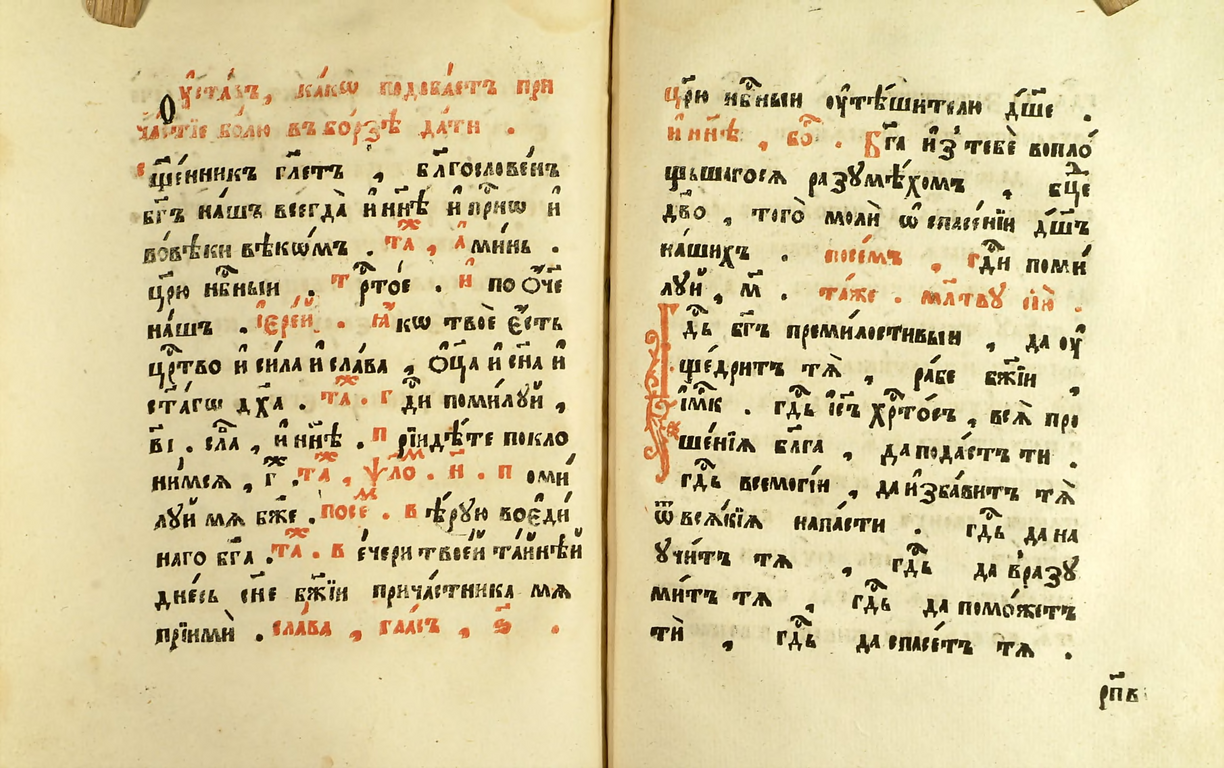 Оу҆ста́въ, ка́кѡ подоба́етъ при
ча́стїе бо́лю въбо́рзѣ да́ти .
сщ҃е́нникъ гл҃етъ , бл҃гослове́нъ
бг҃ъ на́шъ всегда̀ и҆нн҃ѣ и҆при́нѡ и҆
вовѣ́ки вѣкѡ́мъ . таж , а҆ми́нь .
цр҃ю нб҃ныи . трⷭ҇то́е . и҆ пооч҃е
на́шъ . і҆ере́й . ꙗ҆́кѡ твоѐ е҆́сть
црⷭ҇тво и҆си́ла и҆сла́ва , оц҃а и҆сн҃а и҆
ст҃а́гѡ дх҃а . таж . гдⷭ҇и поми́луй ,
в҃і . сла̀ , и҆нн҃ѣ . прїидѣ́те покло
ни́мся , г҃ . таж , ѱало́м . н҃ . поми́
луй мя бж҃е . посем . вѣ́рую воеди́
наго бг҃а . таж . ве́чери твое́й та́йнѣй
дне́сь сн҃е бж҃їи прича́стника мѧ
прїимѝ . сла́ва , гла́съ , ѕ҃ .
цр҃ю нб҃ныи оу҆тѣ́шителю дш҃е .
и҆ нн҃ѣ , бо . Бг҃а и҆з̾тебѐ вопло́
щьшагося разꙋмѣ́хомъ , бц҃е
дв҃о , того̀ молѝ ѡ҆спасе́нїи дш҃ъ
на́шихъ . посе́мъ , гдⷭ҇и поми́
луй , м҃ . та́же . мл҃твꙋ сїю̀ .
Гдⷭ҇ь бг҃ъ преми́лостивыи , да оу҆
ще́дритъ тѧ̀ , ра́бе бж҃їи ,
и҆́мⷬ҇к . гдⷭ҇ь і҆с҃ъ хрⷭ҇то́съ , всѧ̀ про
ше́нїѧ бл҃га́ѧ , дапода́стъ ти .
гдⷭ҇ь всемогі́и , даи҆зба́витъ тѧ̀
ѿвсѧ́кїѧ напа́сти . гдⷭ҇ь дана
ꙋчи́тъ тѧ , гдⷭ҇ь да вразꙋ
ми́тъ тѧ , гдⷭ҇ь да помо́жетъ
тѝ , гдⷭ҇ь даспасе́тъ тѧ .
рп҃в